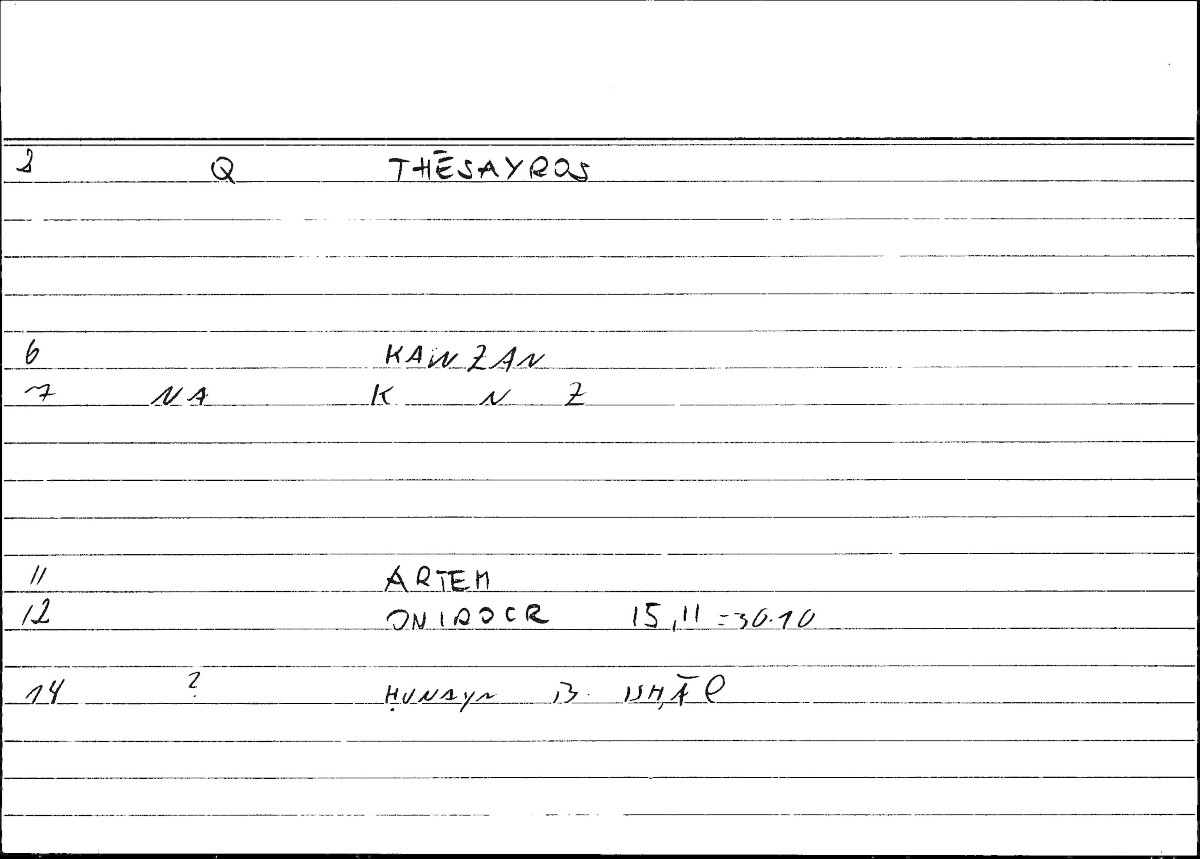 2 Q THĒSAYROS
6 KAWZAN
7 NA K N Z
11 ARTEM
12 ONIROCR 15,11 =30.10
14 ? ḤUNAYN B. ISḤĀQ